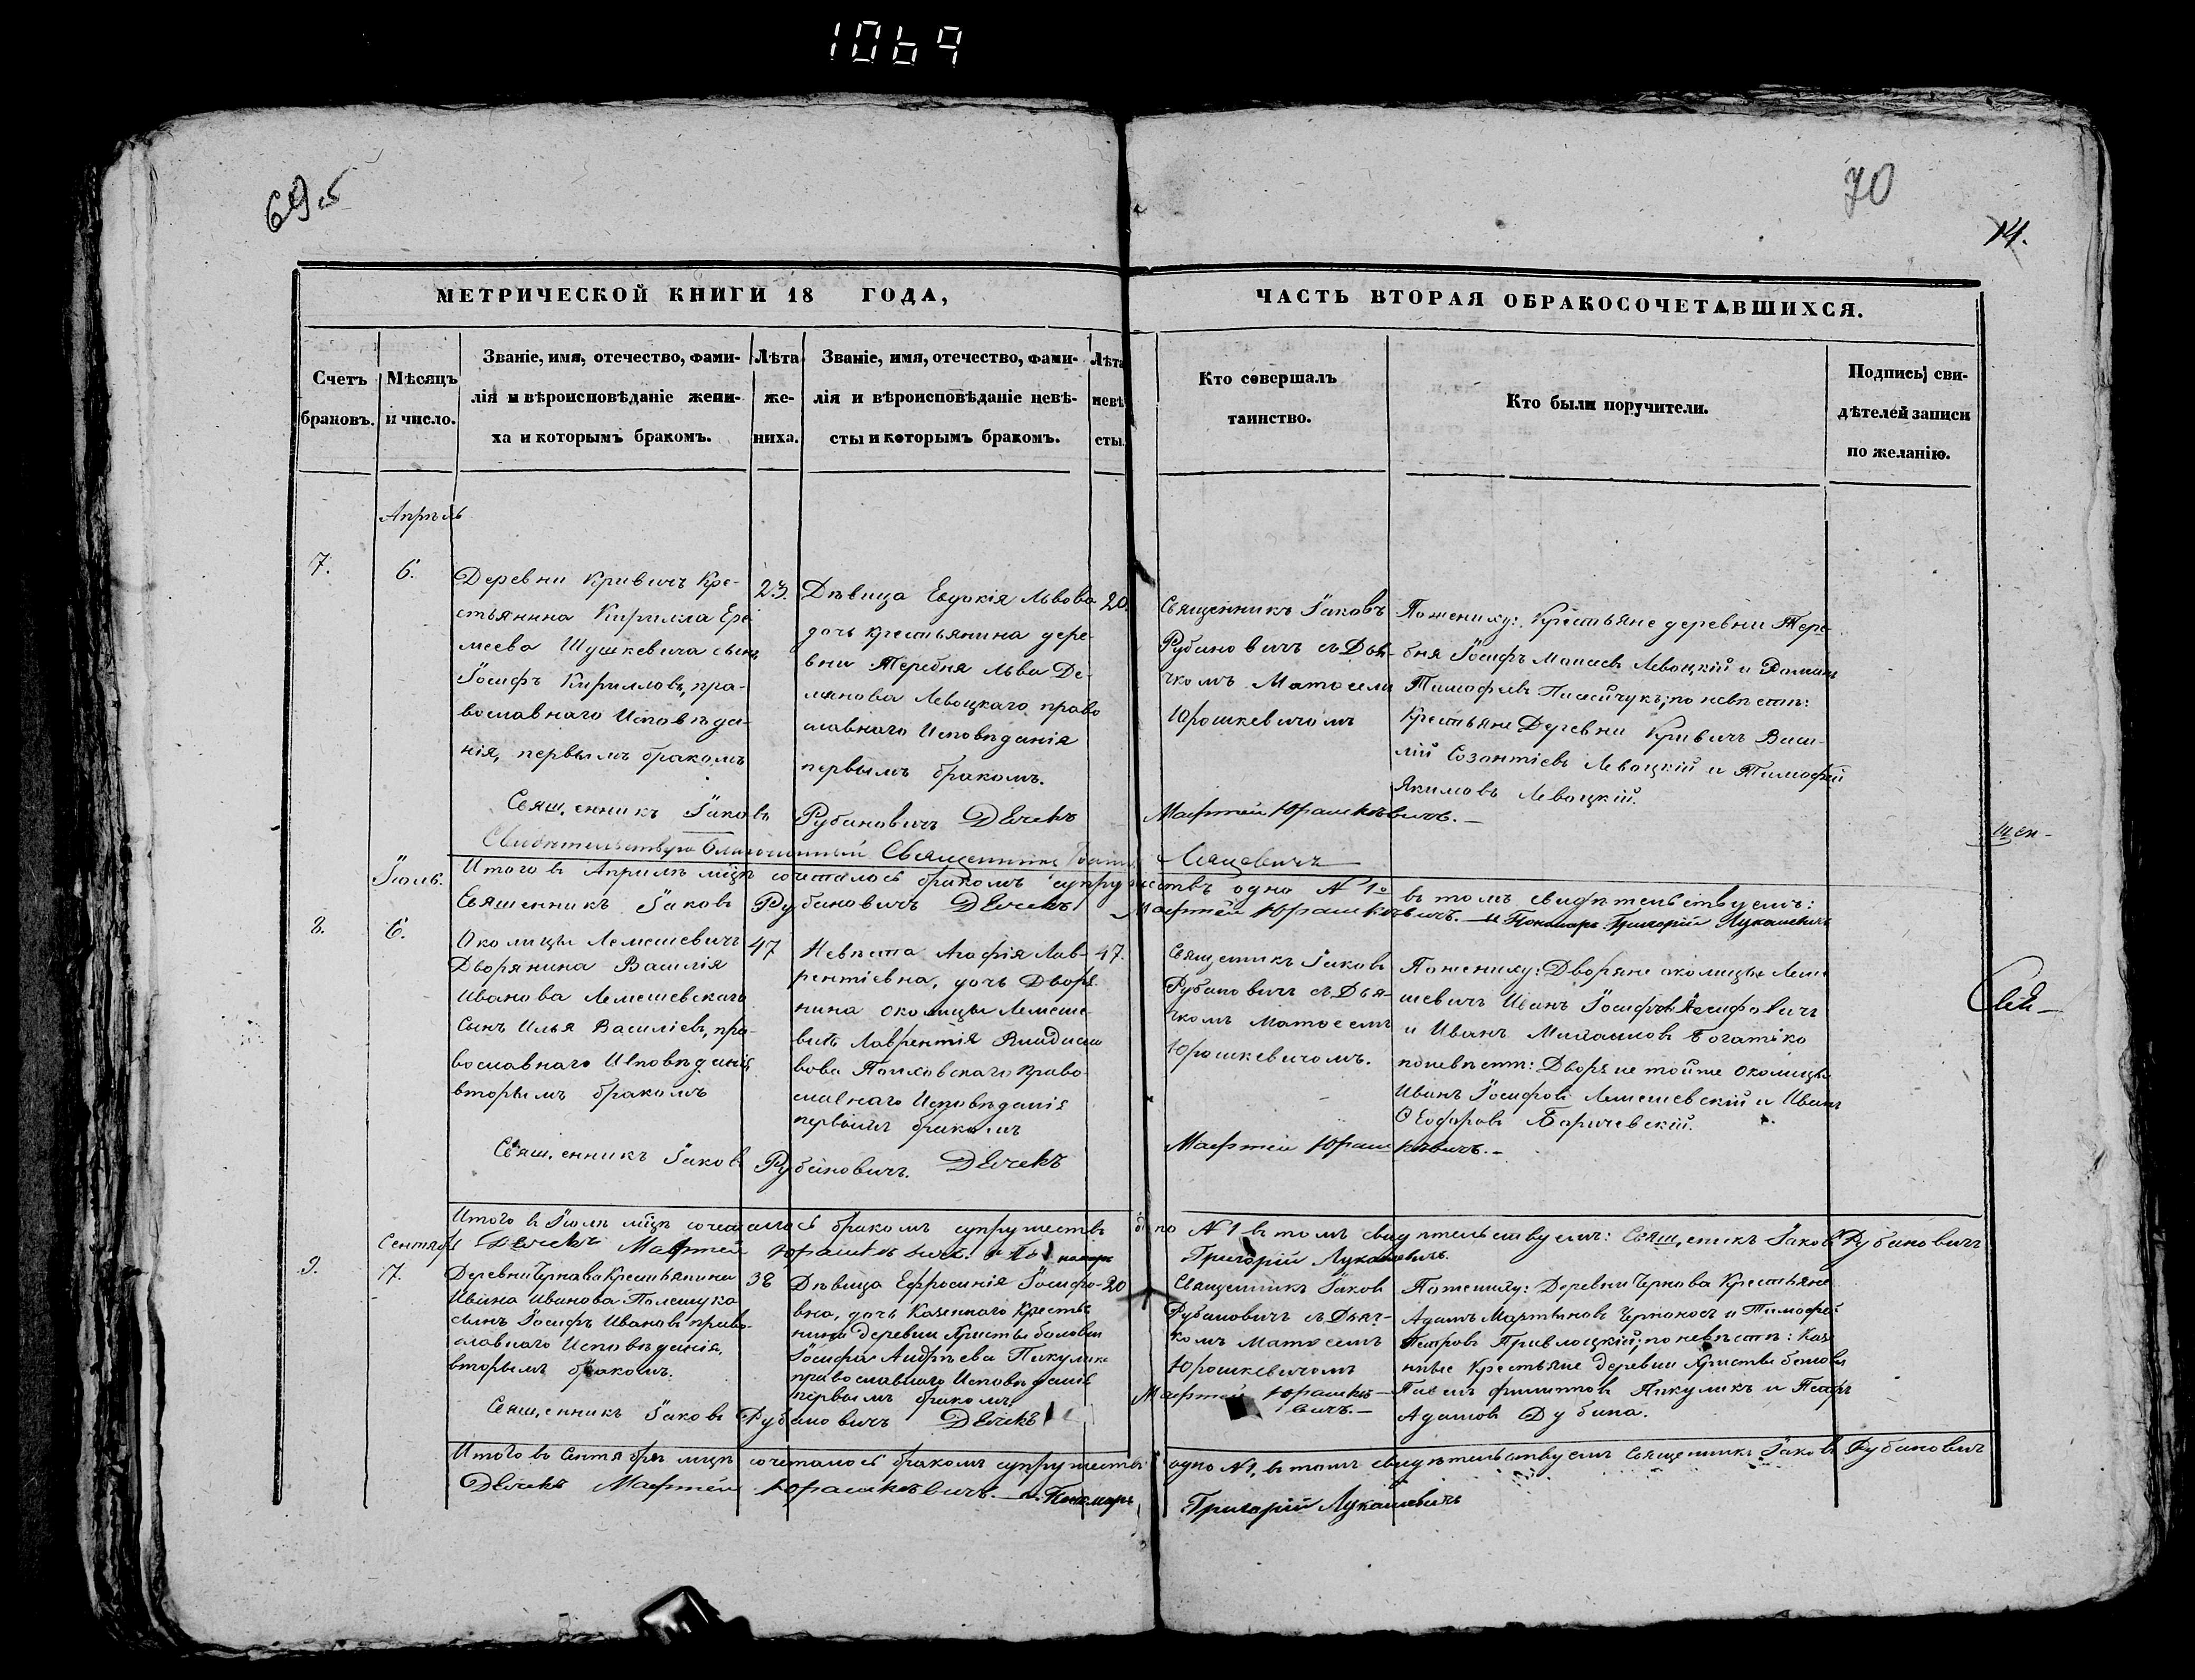 1069
69об
70
14.
МЕТРИЧЕСКОЙ КНИГИ 18 ГОДА,
ЧАСТЬ ВТОРАЯ ОБРАКОСОЧЕТАВШИХСЯ.
Счетъ
браковъ.
Мѣсяцъ
и число.
Званіе, имя, отечество, фами-
лія и вѣроисповѣданіе жени-
ха и которымъ бракомъ.
Лѣта
же-
ниха.
Званіе, имя, отечество, фами-
лія и вѣроисповѣданіе невѣ-
сты и которымъ бракомъ.
Лѣта
невѣ
сты.
Кто совершалъ
таинство.
Кто были поручители.
Подпись сви-
дѣтелей записи
по желанію.
Апрѣль
7.
6.
Деревни Кривичъ Кре-
стьянина Кирилла Ере
меева Шушкевича сынъ
Іосифъ Кирилловъ, пра-
вославнаго Исповѣда-
нія, первымъ бракомъ
23.
Дѣвица Евдокія Львова
дочь крестьянина дере-
вни Теребня Льва Де-
мянова Левоцкаго право
славнаго Исповѣданія
первымъ бракомъ.
20.
Священникъ Іаковъ
Рубановичъ съ Дья-
чкомъ Матѳеемъ
Юрошкевичомъ
Поженику: Крестьяне деревни Тере-
бня Іосифъ Моисеевъ Левоцкій и
Тимофѣевъ по невѣстѣ:
Крестьяне Деревни Кривичъ Васи-
лій Созонтіевъ Левоцкій и Тимофѣй
Якимовъ Левоцкій.
Священникъ Іаковъ Рубановичъ Дьячекъ Мафтей Юрашкѣвичъ.—
Свидѣтельствую Благочинный Священникъ
щен-
Итого въ Апрѣлѣ мцѣ сочеталось бракомъ супружествъ одно №1о въ томъ свидѣтельствуемъ:
Священникъ Іаковъ Рубановичъ Дьячекъ Мафтей Юрашкѣвичъ.— и Пономарь Григорій Лукашевичъ
Іюль.
8.
6.
Околицы Лемешевичъ
Дворянина Василія
Иванова Лемешевскаго
Сынъ Илья Василіевъ, пра-
вославнаго Исповѣданія
вторымъ бракомъ
47
Невѣста Агафія Лав-
рентіевна, дочь Дворя
нина околицы Лемеше-
вичъ Лаврентія
вова Полховскаго право
славнаго Исповѣданія
первымъ бракомъ
47.
Священникъ Іаковъ
Рубановичъ съ Дья-
чкомъ Матѳеемъ
Юрошкевичомъ.
Поженику: Дворяне околицы Леме
шевичъ Иванъ
и Иванъ Михаиловъ Богатко
поневѣстѣ: Дворяне тойже Околицы
Иванъ Іосифовъ Лемешевскій и Иванъ
Ѳеодоровъ Баричевскій.
Священникъ Іаковъ Рубановичъ. Дьячекъ Мафтей Юрашкѣвичъ.—
Итого въ Іюлѣ мцѣ сочеталось бракомъ супружествъ одно №1 въ томъ свидѣтельствуемъ: Священникъ Іаковъ Рубановичъ
Дьячекъ Мафтей Юрашкѣвичъ. и Пономарь Григорій Лукашевичъ.
Сентябрь
9.
17.
Деревни Чернова Крестьянина
Ивана Иванова Полешука
сынъ Іосифъ Ивановъ право-
славнаго Исповѣданія,
вторымъ бракомъ.
38
Дѣвица Ефросинія Іосифо-
вна, дочь Казеннаго Крестья
нина деревни Христы боловы
Іосифа Андрѣева Пикулика
православнаго Исповѣданія
первымъ бракомъ
20
Священникъ Іаковъ
Рубановичъ съ Дьяч-
комъ Матѳеемъ
Юрошкевичомъ
Поженику: Деревни Чернова Крестьяне
Адамъ Мартыновъ Черноносъ и Тимофей
Петровъ Привлоцкій; по невѣстѣ: Казе
нные Крестьяне деревни Христы боловы
Филипповъ Пикуликъ и Петръ
Адамовъ Дубина.
Священникъ Іаковъ Рубановичъ Дьячекъ Мафтей Юрашкѣ-
вичъ.—
Итого въ Сентябрѣ мцѣ сочеталось бракомъ супружествъ одно №1, въ томъ свидѣтельствуемъ Священникъ Іаковъ Рубановичъ
Дьячекъ Мафтей Юрашкѣвичъ.— и Пономарь Григорій Лукашевичъ